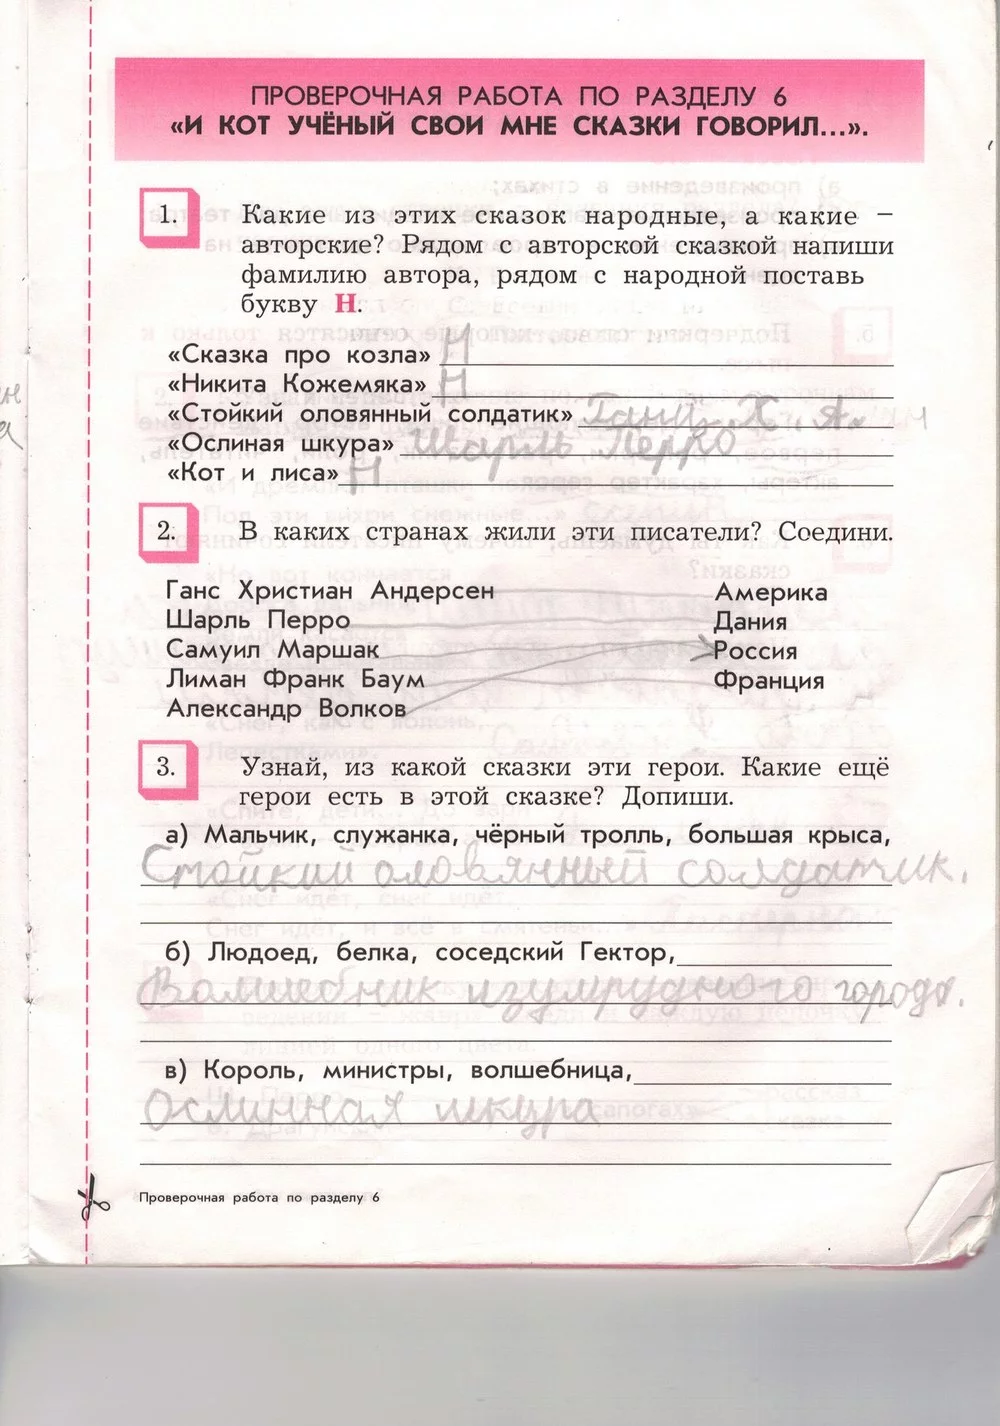 ПРОВЕРОЧНАЯ РАБОТА ПО РАЗДЕЛУ 6
«И КОТ УЧЁНЫЙ СВОИ МНЕ СКАЗКИ ГОВОРИЛ...».
1. Какие из этих сказок народные, а какие –
авторские? Рядом с авторской сказкой напиши
фамилию автора, рядом с народной поставь
букву Н.
«Сказка про козла» Н
«Никита Кожемяка» Н
«Стойкий оловянный солдатик» Ганц. Х. А.
«Ослиная шкура» Шарль Перро
«Кот и лиса» Н
2. В каких странах жили эти писатели? Соедини.
Ганс Христиан Андерсен Америка
Шарль Перро Дания
Самуил Маршак Россия
Лиман Франк Баум Франция
Александр Волков
3. Узнай, из какой сказки эти герои. Какие ещё
герои есть в этой сказке? Допиши.
а) Мальчик, служанка, чёрный тролль, большая крыса,
Стойкий оловянный солдатик.
б) Людоед, белка, соседский Гектор,
Волшебник изумрудного города.
в) Король, министры, волшебница,
Ослинная шкура
Проверочная работа по разделу 6